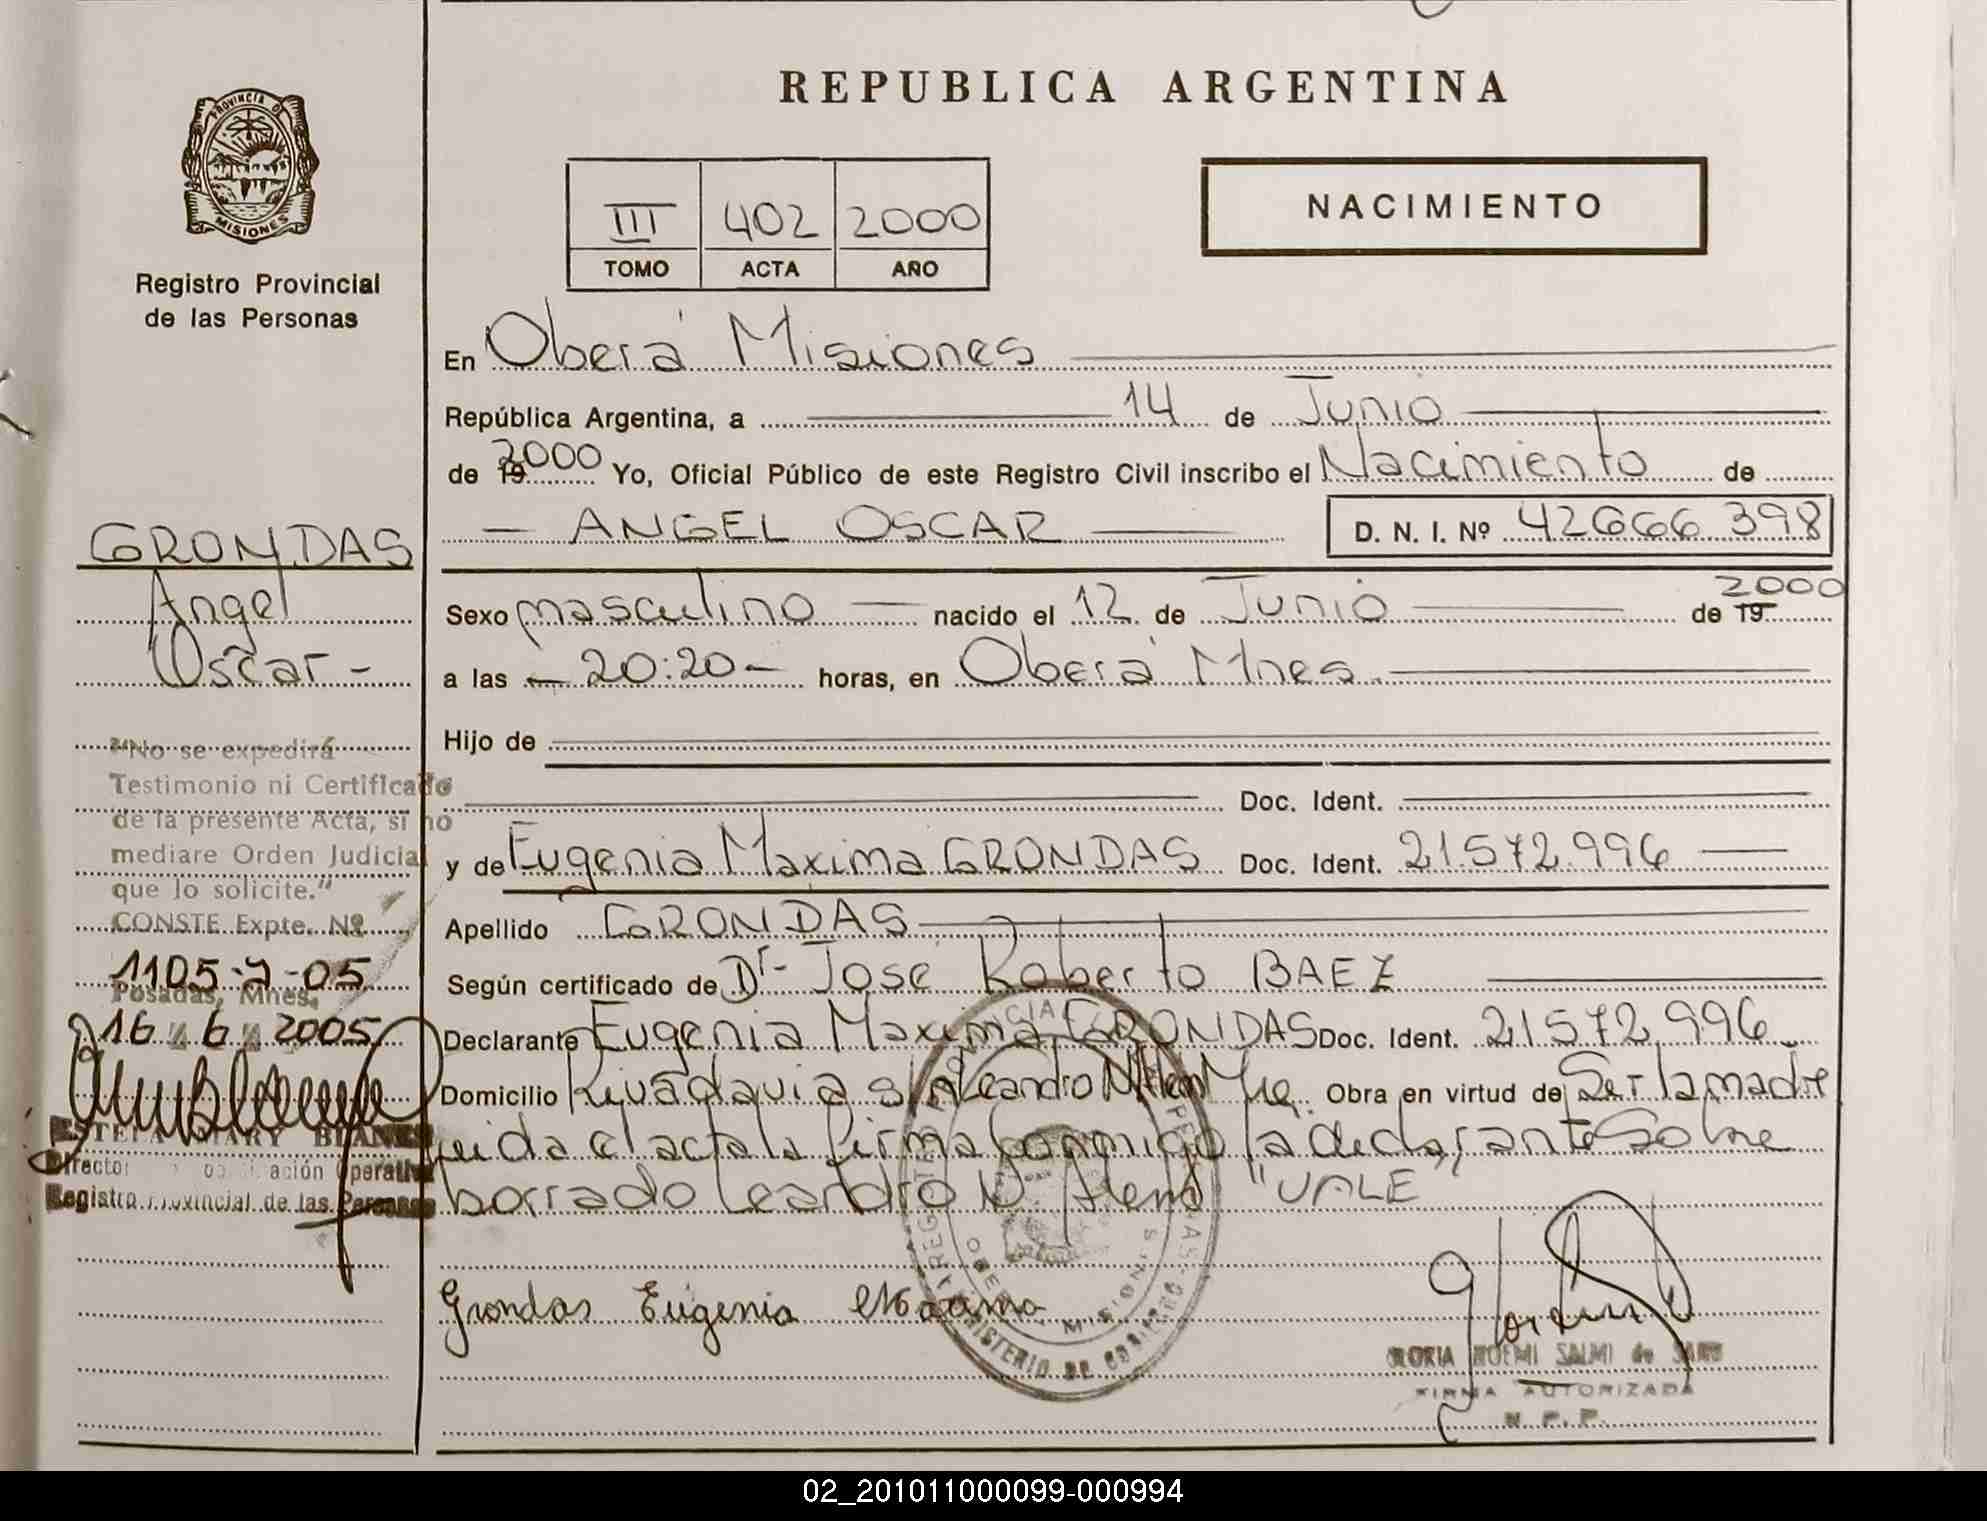 PROVINCIA DE
MISIONES
Registro Provincial
de las Personas
GRONDAS
Angel
Oscar -
"No se expedirá
Testimonio ni Certificado
de la presente Acta, si no
mediare Orden Judicial
que lo solicite."
CONSTE Expte. Nº
1105-7-05
Posadas, Mnes,
16 6 2005
ESTELA MARY
Operativa
Registro Provincial de las Personas
REPUBLICA ARGENTINA
III 402 2000
TOMO ACTA AÑO
NACIMIENTO
En Oberá Misiones
República Argentina, a 14 de Junio
de 19 2000 Yo, Oficial Público de este Registro Civil inscribo el Nacimiento de
— ANGEL OSCAR — D. N. I. Nº 42666 398
Sexo masculino — nacido el 12 de Junio de 19 2000
a las - 20:20 - horas, en Oberá Mnes.
Hijo de
Doc. Ident.
y de Eugenia Maxima GRONDAS Doc. Ident. 21.572.996 —
Apellido GRONDAS
Según certificado de Dr- Jose Roberto BAEZ
Declarante Eugenia Maxima GRONDAS Doc. Ident. 21572.996
Domicilio Rivadavia s/n Leandro N Alem Obra en virtud de Ser la madre
leida el acta la firma conmigo la declarante Sobre
borrado Leandro N. Alem "VALE"
Grondas Eugenia Maxima
GLORIA NOEMI SALMI de
FIRMA AUTORIZADA
R. P. P.
02_201011000099-000994